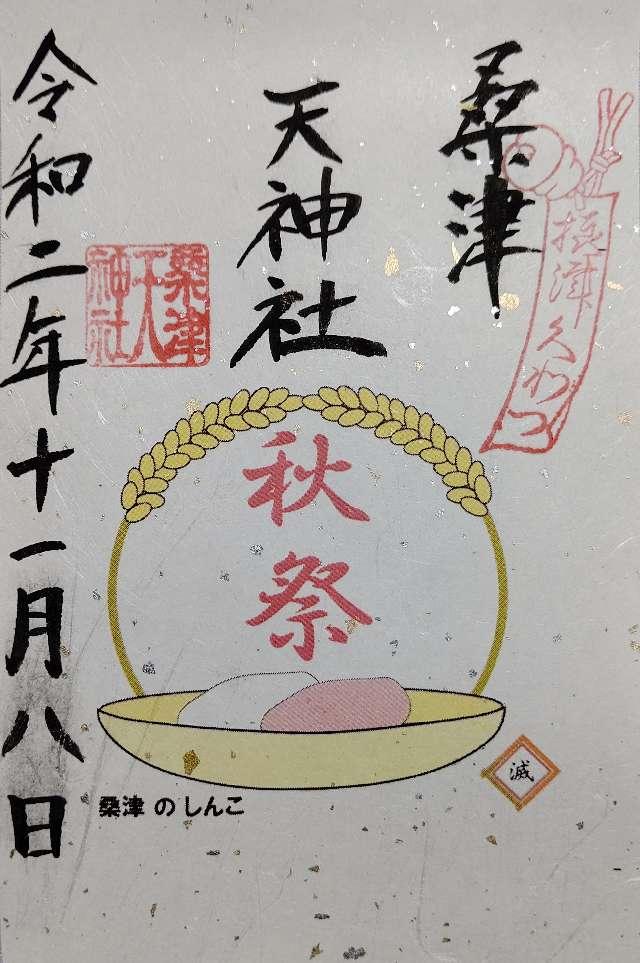 桑津
天神社
令和二年十一月八日
摂津久わつ
桑津
天神社
秋祭
滅
桑津 のしんこ